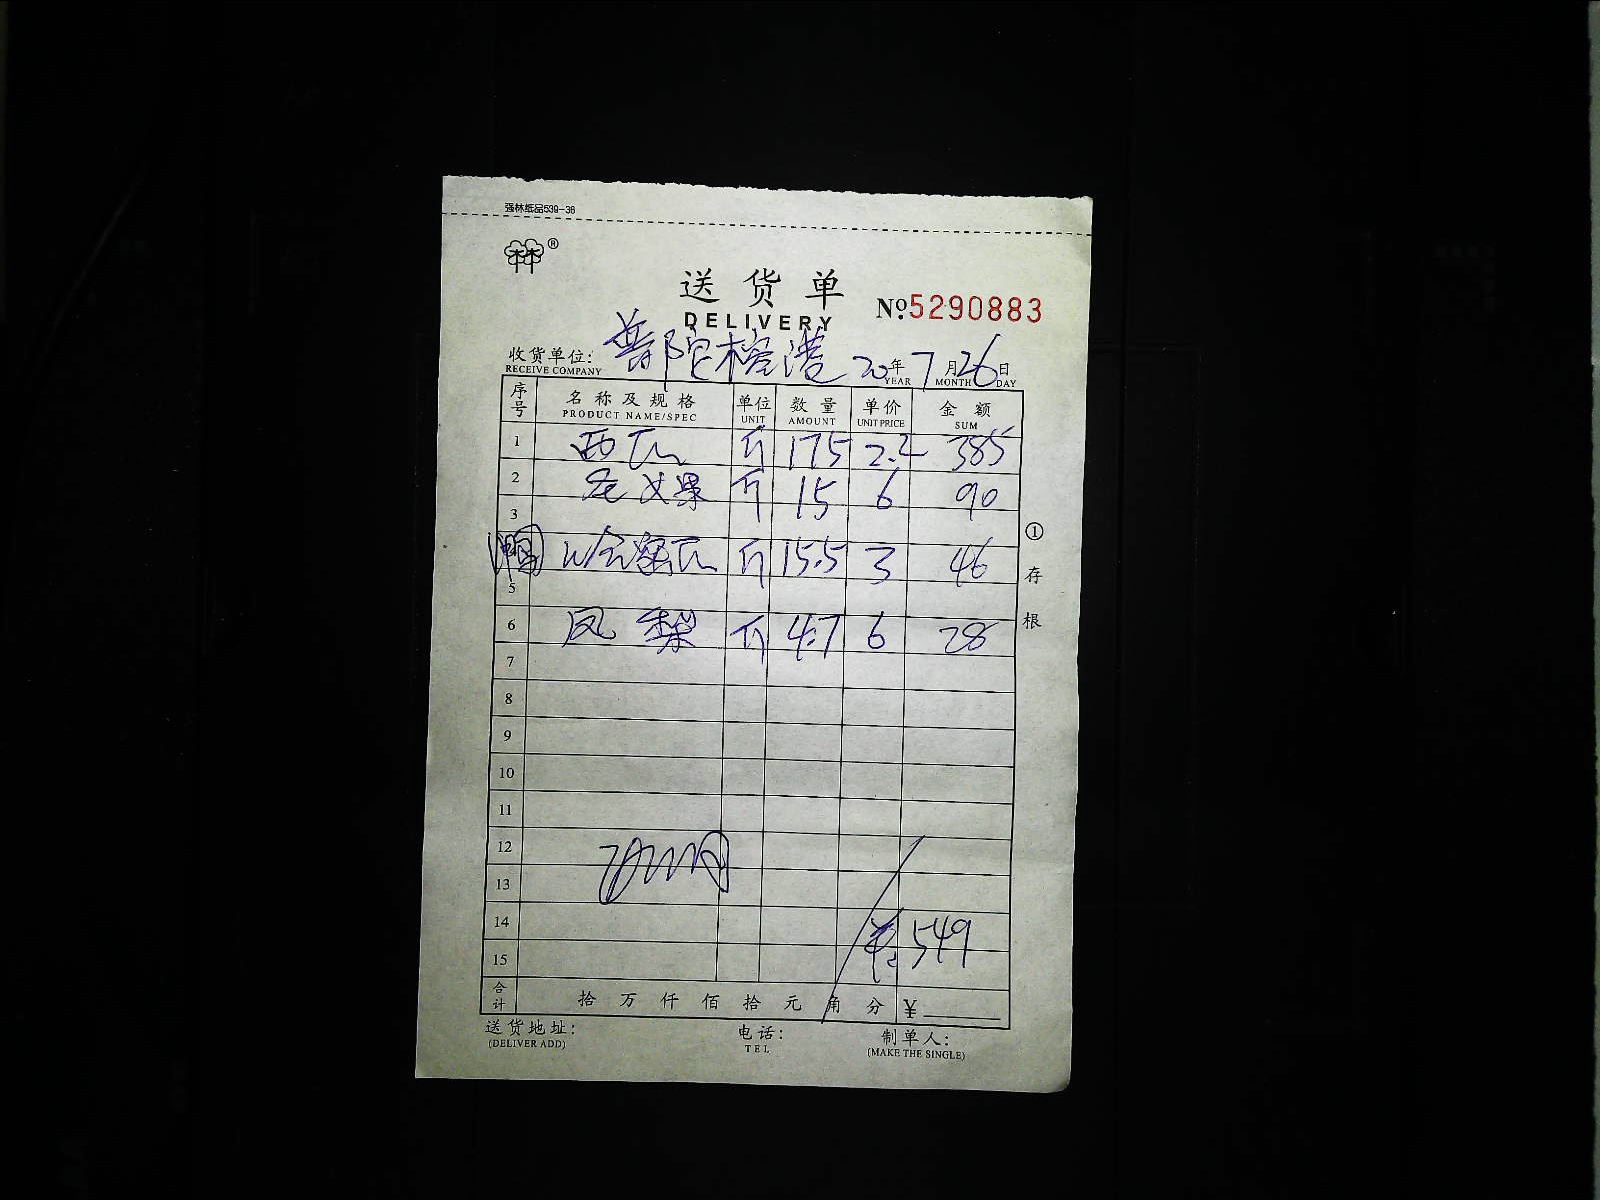 强林纸品539-36
林®
送货单
№5290883
DELIVERY
收货单位: 普陀榕港 20年7月26日
RECEIVE COMPANY YEAR MONTH DAY
序号 名称及规格 单位 数量 单价 金额
PRODUCT NAME/SPEC UNIT AMOUNT UNIT PRICE SUM
1 西瓜 斤 175 2.2 385
2 火果 斤 15 6 90
3
瓜 斤 15.5 3 46
5
6 凤梨 斤 4.7 6 28
7
8
9
10
11
12
13
14 549
15
合计 拾 万 仟 佰 拾 元 角 分 ¥
①存根
送货地址: 电话: 制单人:
(DELIVER ADD) TEL (MAKE THE SINGLE)